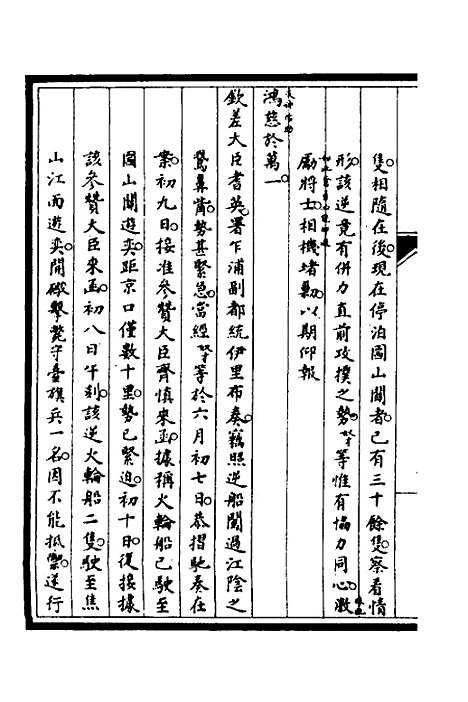 隻相隨在後現在停泊圌山關者已有三十餘隻察看情
形該逆竟有併力直前攻撲之勢奴才等惟有協力同心激
勵將士相機堵勦以期仰報
鴻慈於萬一
欽差大臣耆英署乍浦副都統伊里布奏竊照逆船闖過江陰之
鵞鼻觜勢甚緊急當經奴才等於六月初七日恭摺馳奏在
案初九日接准參贊大臣齊慎來函據稱火輪船已駛至
圌山關遊奕距京口僅數十里勢已緊迫初十日復接據
該參贊大臣來函初八日午刻該逆火輪船二隻駛至焦
山江面遊奕開礮擊斃守臺旗兵一名因不能抵禦逆行